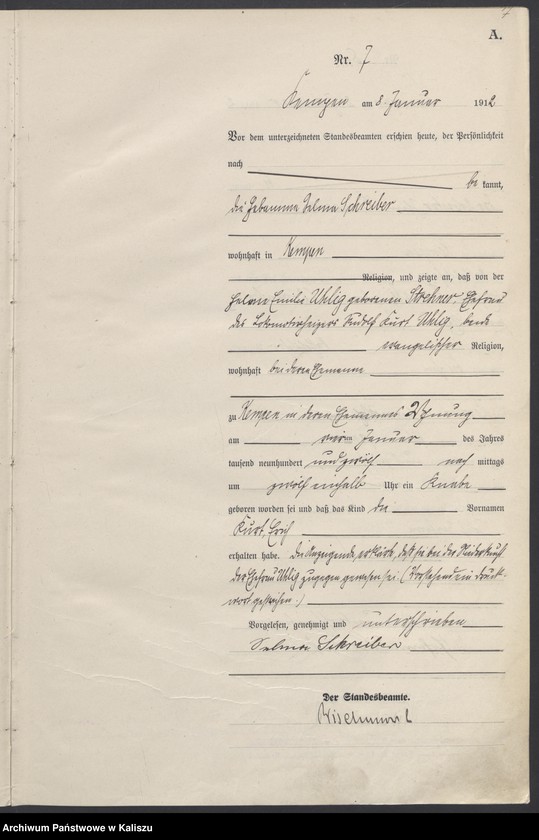 7
A.
Nr. 7
Kempen am 8 Januar 1912
Vor dem unterzeichneten Standesbeamten erschien heute, der Persönlichkeit
nach
be kannt,
die Hebamme Selma Schreiber
wohnhaft in Kempen
Religion, und zeigte an, daß von der
Emilie Uhlig geborenen Ehefrau
des Lokomotivheizers Rudolf Kurt Uhlig, beide
evangelischer Religion,
wohnhaft bei deren Ehemann
zu Kempen in deren Ehemannes Wohnung
am vierten Januar des Jahres
tausend neunhundert und zwölf nach mittags
um zwölf einhalb Uhr ein Knabe
geboren worden sei und daß das Kind die Vornamen
Kurt, Erich
erhalten habe. Die Anzeigende erklärte, daß sie bei der Niederkunft
der Ehefrau Uhlig zugegen gewesen sei. (Vorstehend ein Druck-
wort gestrichen.)
Vorgelesen, genehmigt und unterschrieben
Selma Schreiber
Der Standesbeamte.
Archiwum Państwowe w Kaliszu